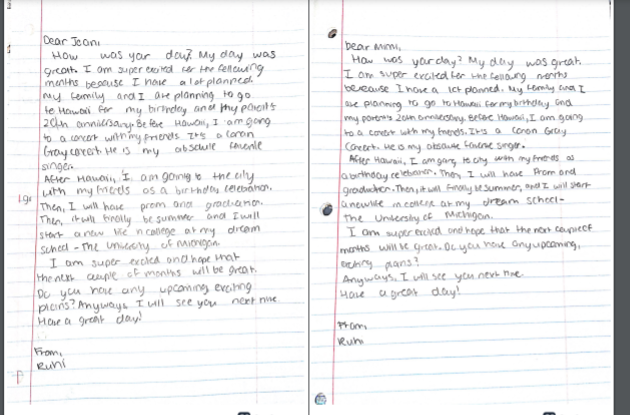 Dear Joani,
How was your day? My day was
great. I am super excited for the following
months because I have a lot planned.
My family and I are planning to go
to Hawaii for my birthday and my parent's
20th anniversary. Before Hawaii, I am going
to a concert with my friends. It's a Conan
Gray concert. He is my absolute favorite
singer.
After Hawaii, I am going to the city
with my friends as a birthday celebration.
Then, I will have prom and graduation.
Then, it will finally be summer and I will
start a new life in college at my dream
school - The University of Michigan.
I am super excited and hope that
the next couple of months will be great.
Do you have any upcoming exciting
plans? Anyways I will see you next time.
Have a great day!
From,
Ruhi
Dear Mimi,
How was your day? My day was great.
I am super excited for the following months
because I have a lot planned. My family and I
are planning to go to Hawaii for my birthday and
my parent's 20th anniversary. Before Hawaii, I am going
to a concert with my friends. It's a Conan Gray
Concert. He is my absolute favorite singer.
After Hawaii, I am going to city with my friends as
a birthday celebration. Then, I will have Prom and
graduation. Then, it will finally be summer, and I will start
a new life in college at my dream school-
The University of Michigan.
I am super excited and hope that the next couple of
months will be great. Do you have any upcoming,
exciting plans?
Anyways, I will see you next time.
Have a great day!
From,
Ruhi